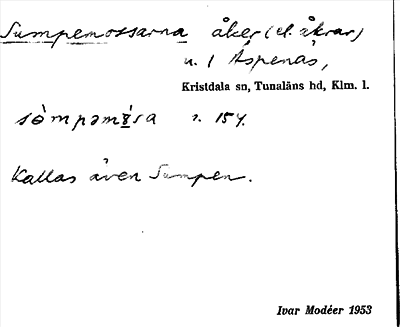 Sumpemossarna åker (el. åkrar)
u. 1 Äspenäs,
Kristdala sn, Tunaläns hd, Klm. l.
s. 154.
Kallas även Sumpen.
Ivar Modéer 1953